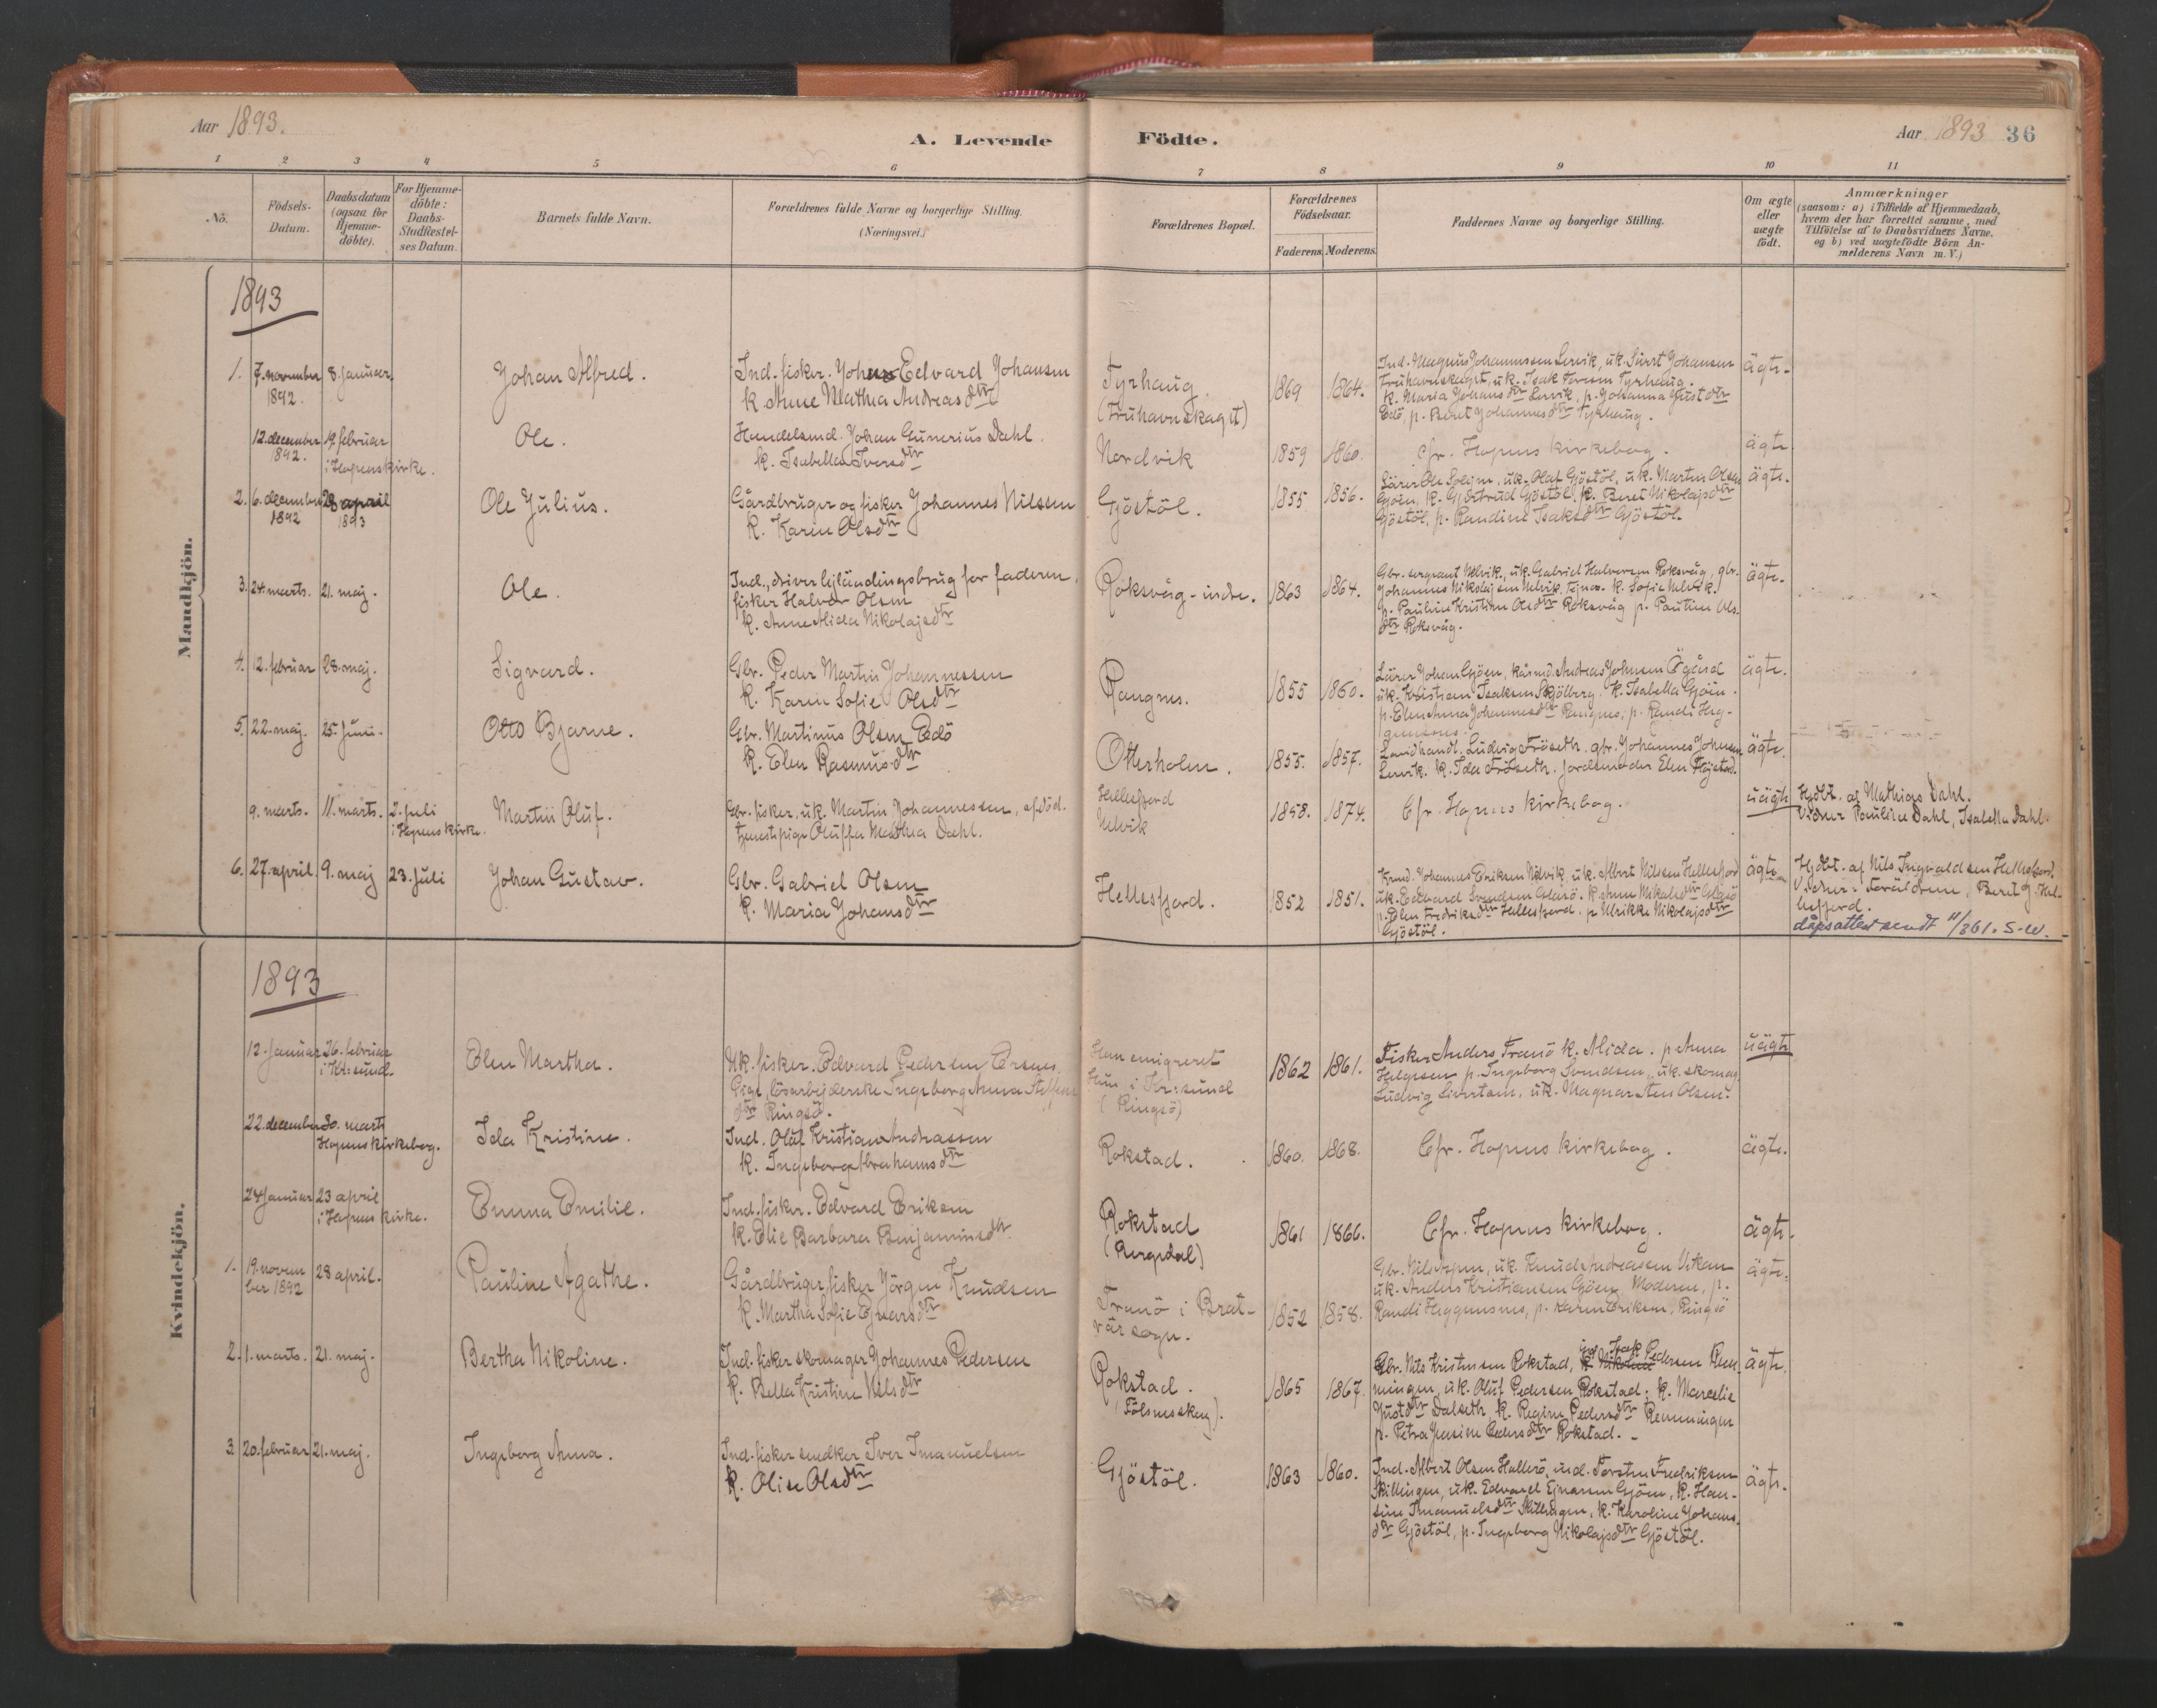 Aar 1893.
A. Levende Födte.
Aar 1893 36
1 2 3 4 5 6 7 8 9 10 11
No.
Födsels-Datum.
Daabsdatum (ogsaa for Hjemme-döbte).
For Hjemme-döbte: Daabs-Stadfæstel-ses Datum.
Barnets fulde Navn.
Forældrenes fulde Navne og borgerlige Stilling. (Næringsvei.)
Forældrenes Bopæl.
Forældrenes Födselsaar.
Faderens. Moderens.
Faddernes Navne og borgerlige Stilling.
Om ægte eller uægte födt.
Anmærkninger
(saasom: a) i Tilfælde af Hjemmedaab, hvem der har forrettet samme, med Tilföielse af to Daabsvidners Navne, og b) ved uægtefödte Börn An-melderens Navn m. V.)
Mandkjön.
1893
1. 7. november 1892. 8. januar.
Johan Alfred.
Ind. fisker. Johan Edvard Johansen
k. Anne Mathea Andreasdtr
Tyrhaug (Fruhavnskaget)
1869 1864.
Ind. Magnus Johannessen Lervik, uk. Sivert Johansen
Fruhavnskaget, uk. Isak Tyrhaug.
k. Maria Johansdtr Lervik, p. Johanna
Edö, p. Beret Johannesdtr Tyrhaug.
ägte.
12. december 1892. 19. februar i Hopens kirke.
Ole.
Handelsmd. Johan Gunerius Dahl.
k. Isabella Iversdtr
Nordvik
1859 1860.
Cfr. Hopens kirkebog.
ägte.
2. 6. december 1892 28 april 1893
Ole Julius.
Gårdbruger og fisker Johannes Nilsen
k. Karen Olsdtr
Gjöstöl.
1855 1856.
Lärer Ole Solem, uk. Olaf Gjöstöl, uk. Martin Olsen
Gjöen, k. Gjertrud Gjöstöl, k. Beret Nikolajsdtr
Gjöstöl, p. Randine Isaksdtr Gjöstöl.
ägte.
3. 24. marts. 21. maj.
Ole.
Ind., driver lejländingsbrug for faderen,
fisker Halvor Olsen
k. Anne Alida Nikolajsdtr
Roksvåg-indre.
1863 1864.
Gbr. sergeant Nelvik, uk. Gabriel Halvorsen Roksvåg, gbr.
Johannes Nikolajsen Nelvik, k. Sofie Nelvik.
p. Pauline Kristine Olsdtr Roksvåg p. Pauline Ols-
dtr Roksvåg.
ägte.
4. 12. februar 28. maj.
Sigvard.
Gbr. Peder Martin Johannessen
k. Karen Sofie Olsdtr
Rangnes.
1855 1860.
Lärer Johan Gjöen, Andreas Johnsen Ögård
uk. Kristian Isaksen Skjölberg. k. Isabella Gjöen.
p. Elen Anna Johannesdtr Rangnes, p. Randi Heg-
ägte.
5. 22. maj. 25. juni.
Otto Bjarne.
Gbr. Martinus Olsen Edö
k. Elen Rasmusdtr
Otterholm.
1855. 1857.
Landhandl. Ludvig Fröseth. gbr. Johannes Johnsen
Lervik. k. Ida Fröseth. jordemoder Elen
ägte.
9. marts. 11. marts. 2. juli i Hopens kirke.
Martin Oluf.
Gbr. fisker, uk. Martin Johannessen, afdöd.
tjenestepige Oluffa Mathea Dahl.
Hellesfjord
Nelvik
1858. 1874.
Cfr. Hopens kirkebog.
uägte
Hjdbt. af Mathias Dahl.
Vidner Pauline Dahl, Isabella Dahl.
6. 27. april 9. maj 23. juli
Johan Gustav.
Gbr. Gabriel Olsen
k. Maria Johansdtr
Hellesfjord.
1852 1851.
Johannes Eriksen Nelvik uk. Albert Nilsen Hellesfjord
uk. Edvard Svendsen k. Anne
p. Elen Fredriksdtr Hellesfjord. p. Ulrikke Nikolajsdtr
Gjöstöl.
ägte.
Hjdbt. af Nils Ingvaldsen Hellesfjord.
Vidner: Foräldrene, Beret J. Hel-
lesfjord.
dåpsattest sendt 11/3 61. S-W.
Kvindekjön.
1893
12. januar 26. februar i Kr:sund.
Elen Martha.
Uk. fisker. Edvard Pedersen
Pige, lösarbejderske Ingeborg Anna Steffens
dtr Ringsö.
Han emigreret
Hun i Kr:sund
(Ringsö)
1862 1861.
Fisker Anders Franö k. Alida. p. Anna
Helgesen p. Ingeborg Svendsen, uk. skomag.
Ludvig uk. Magnar Sten Olsen.
uägte
22. december 30. marts Hopens kirkebog.
Ida Kristine.
Ind. Oluf Kristian Andreassen
k. Ingeborg Abrahamsdtr
Rokstad.
1860. 1868.
Cfr. Hopens kirkebog.
ägte.
24 januar 23 april i Hopens kirke.
Emma Emilie.
Ind. fisker. Edvard Eriksen
k. Elie Barbara Benjaminsdtr.
Rokstad (Bergsdal)
1861 1866.
Cfr. Hopens kirkebog.
ägte.
1. 19. novem ber 1892 28 april.
Pauline Agathe.
Gårdbruger, fisker Jörgen Knudsen
k. Martha Sofie Ejnarsdtr
Franö i Brat-
vär sogn.
1852 1858.
Gbr. Nils uk. Knud Andreassen
uk. Anders Kristiansen Gjöen. Moderen, p.
Randi p. Karen Eriksen, Ringsö
ägte.
2. 1. marts. 21. maj.
Bertha Nikoline.
Ind. fisker skomager Johannes Pedersen
k. Bella Kristine Nilsdtr
Rokstad.
1865 1867.
Gbr. Nils Kristensen Rokstad, Isak Pedersen Rem-
mingen, uk. Oluf Pedersen Rokstad; k. Marselie
Justdtr Dalseth k. Regine Pedersdtr Remmingen
p. Petra Jensine Pedersdtr Rokstad.
ägte.
3. 20. februar 21. maj.
Ingeborg Anna.
Ind. fisker Iver Imanuelsen
k. Olise Olsdtr
Gjöstöl.
1863 1860.
Ind. Albert Olsen ind. Torsten Fredriksen
Skillingen, uk. Edvard Ejnarsen Gjöen, k. Han-
sine Imanuelsdtr Skillingen, k. Karoline Johans-
dtr Gjöstöl, p. Ingeborg Nikolajsdtr Gjöstöl.
ägte.